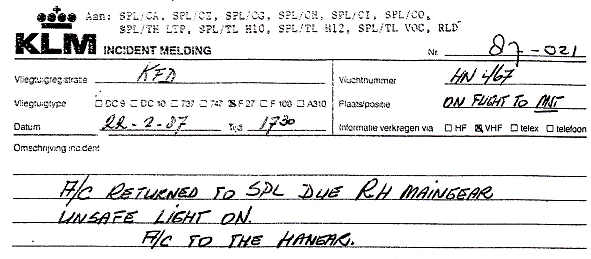 Aan: SPL/CA, SPL/CZ, SPL/CG, SPL/CH, SPL/CI, SPL/CO,
SPL/TH LTP, SPL/TL H10, SPL/TL H12, SPL/TL VOC, RLD
KLM INCIDENT MELDING Nr. 87-021
Vliegtuigregistratie KFD Vluchtnummer HN 467
Vliegtuigtype DC 9 DC 10 737 747 F 27 F 100 A310 Plaats/positie ON FLIGHT TO MST
Datum 22-2-87 Tijd 1730 Informatie verkregen via HF VHF telex telefoon
Omschrijving incident
A/C RETURNED TO SPL DUE RH MAINGEAR
UNSAFE LIGHT ON.
A/C TO THE HANGAR.